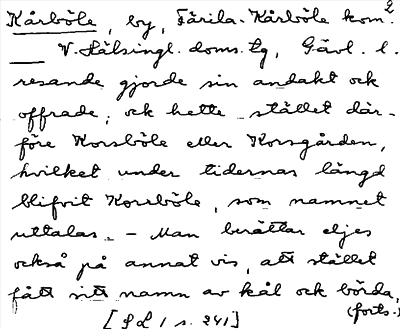 2
Kårböle, by, Färila-Kårböle kom.
V. Hälsingl. doms. tg, Gävl. l.
resande gjorde sin andakt och
offrade; och hette stället där-
före Korsböle eller Korsgården,
hvilket under tidernas längd
blifvit Korsböle, som namnet
uttalas. – Man berättar eljes
också på annat vis, att stället
fått sitt namn av kål och börda,
(forts.)
[SL 1 s. 241]